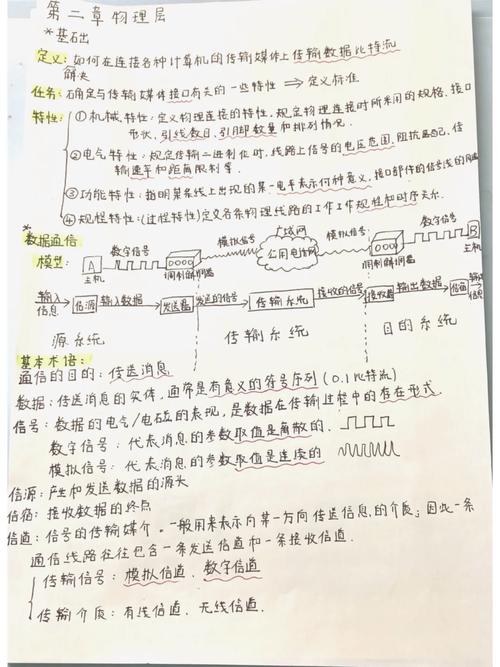 第二章物理层
*基础
定义:如何在连接各种计算机的传输媒体上传输数据比特流
解决
任务:确定与传输媒体接口有关的一些特性 ⇒ 定义标准
特性:①机械特性:定义物理连接的特性,规定物理连接时所采用的规格、接口
形状,引线数目、引脚数量和排列情况.
②电气特性:规定传输二进制位时,线路上信号的电压范围,阻抗匹配,传
输速率和距离限制等.
③功能特性:指明某条线上出现的某一电平表示何种意义,接口部件的信号线的用途
④规程特性:(过程特性)定义各条物理线路的工作工作规程和时序关系.
*
数据通信
模型:
数字信号 模拟信号 广域网 模拟信号 数字信号
A 公用电话网 B
主机 调制解调器 调制解调器 主机
输入信息 信源 输入数据 发送器 发送的信号 传输系统 接收的信号 接收器 输出数据 信宿 输出信息
源系统 传输系统 目的系统
基本术语:
通信的目的:传送消息
数据:传送消息的实体,通常是有意义的符号序列(0.1比特流)
信号:数据的电气/电磁的表现,是数据在传输过程中的存在形式.
数字信号:代表消息的参数取值是离散的.
模拟信号:代表消息的参数取值是连续的
信源:产生和发送数据的源头
信宿:接收数据的终点
信道:信号的传输媒介.一般用来表示向某一方向传送信息的介质;因此一条
通信线路往往包含一条发送信道和一条接收信道.
传输信号:模拟信道、数字信道
传输介质:有线信道、无线信道.